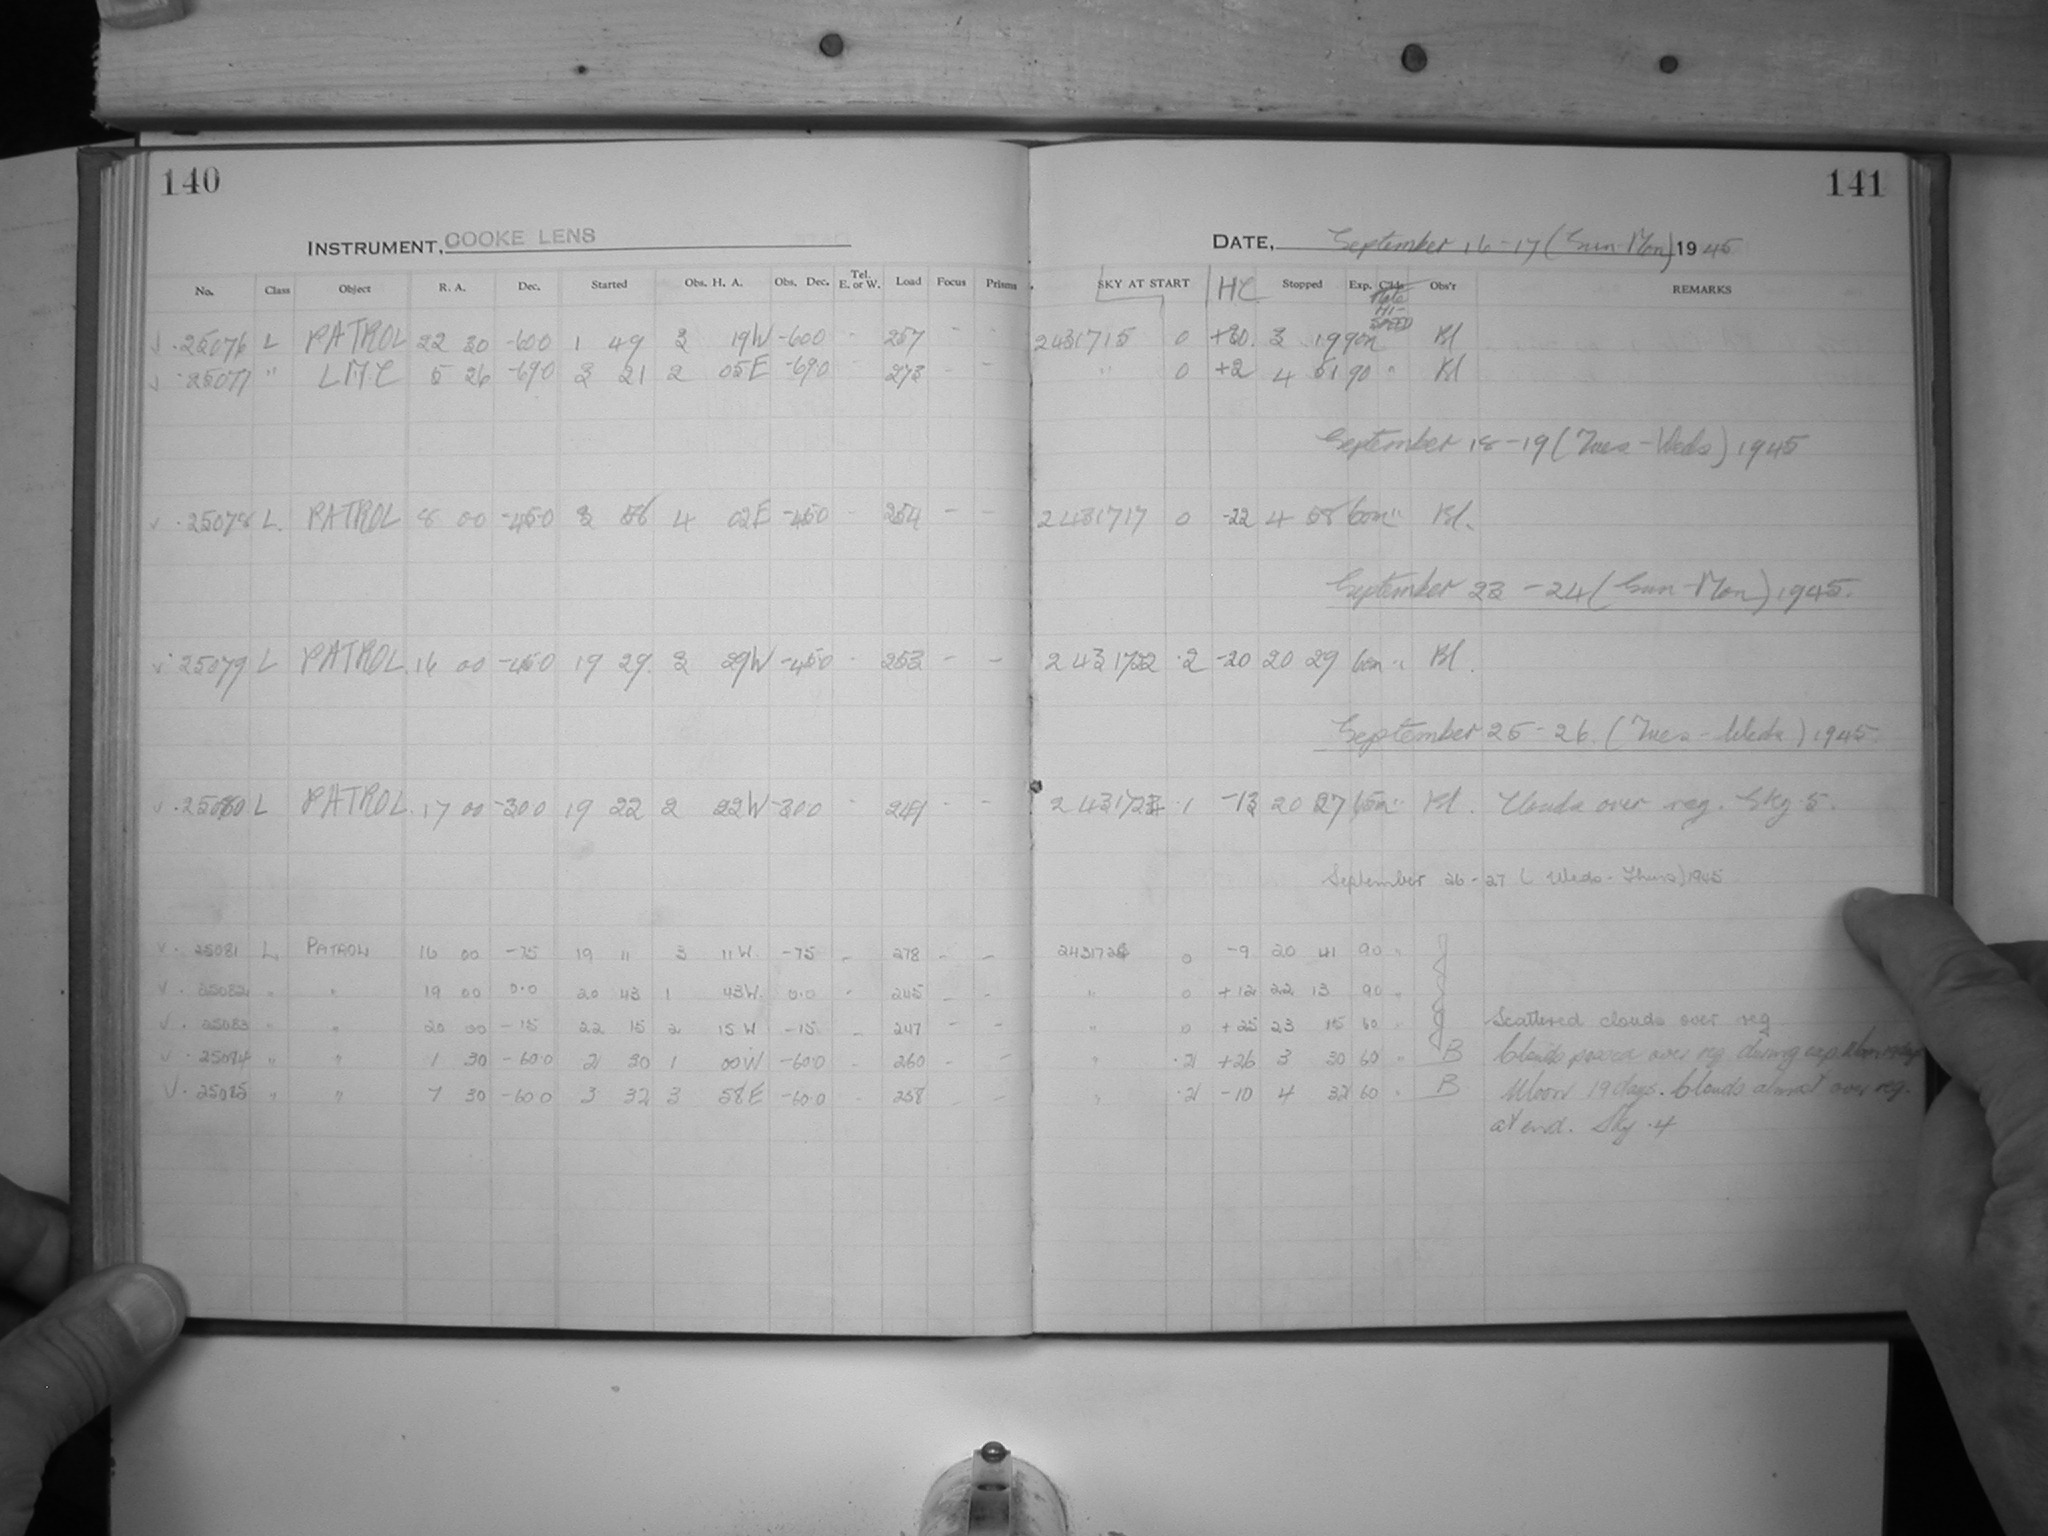 140
141
INSTRUMENT, COOKE LENS
DATE, September 16-17 (Sun-Mon) 1945
No. Class Object R. A. Dec. Started Obs. H. A. Obs. Dec. Tel. E. or W. Load Focus Prisms SKY AT START HC Stopped Exp. Plate HI-SPEED Obs'r REMARKS
√ . 25076 L PATROL 22 30 -600 1 49 3 19W -600 - 257 - - 2431715 0 +30 3 19 90m Bl
√ . 25077 " LMC 5 26 -690 3 21 2 05E -690 273 - - " 0 +2 4 51 90 " Bl
September 18-19 (Tues-Weds) 1945
√ . 25078 L. PATROL 8 00 -450 3 58 4 02E -450 - 254 - - 2431717 0 -22 4 58 60m " Bl.
September 23-24 (Sun-Mon) 1945.
√ . 25079 L PATROL. 16 00 -450 19 29 3 29W -450 - 253 - - 2431722 .2 -20 20 29 60m " Bl.
September 25-26. (Tues-Weds) 1945.
√ . 25080 L PATROL. 17 00 -300 19 22 2 22W -300 - 241 - - 243172 .1 -13 20 27 65m " Bl. Clouds over reg. Sky .5.
September 26-27 (Weds-Thurs) 1945
√ . 25081 L PATROL 16 00 -75 19 11 3 11W -75 - 278 - - 243172 0 -9 20 41 90 " J
√ . 25082 " " 19 00 0.0 20 43 1 43W. 0.0 - 245 - - " 0 +12 22 13 90 " J
√ . 25083 " " 20 00 -15 22 15 2 15W -15 - 247 - - " 0 +25 23 15 60 " J Scattered clouds over reg
√ . 25084 " " 1 30 -600 2 30 1 00W -600 - 260 - - " .2 +26 3 30 60 " B Clouds passed over reg during exp. Moon 19 days
√ . 25085 " " 7 30 -600 3 32 3 58E -600 - 258 - - " .2 -10 4 32 60 " B Moon 19 days. Clouds almost over reg.
at end. Sky .4